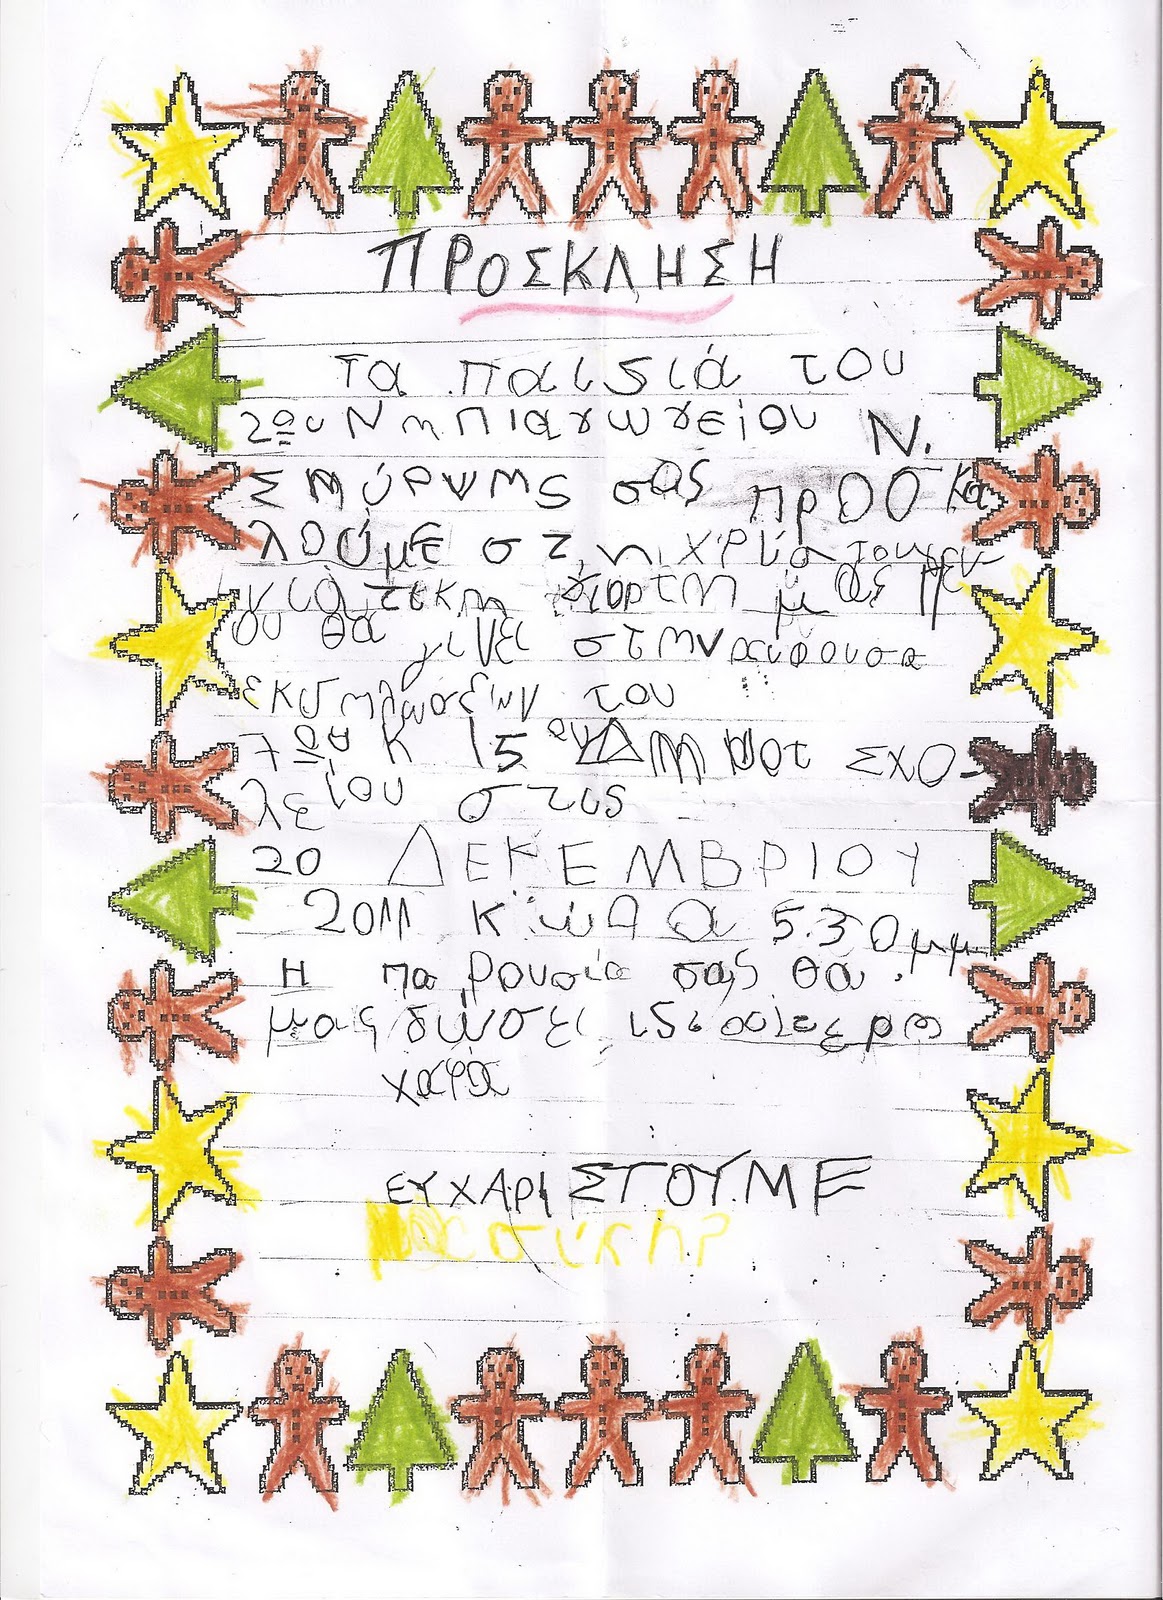 ΠΡΟΣΚΛΗΣΗ
Τα παιδιά του
2ου Νηπιαγωγείου Ν.
Σμύρνης σας προσκα
λούμε στη χριστουγεν-
νιάτικη γιορτή μας που
θα γίνει στην αίθουσα
εκδηλώσεων του
7ου κ 15ου Δημοτ σχο-
λείου στις
20 ΔΕΚΕΜΒΡΙΟΥ
2011 κ ώρα 5.30μμ
Η παρουσία σας θα
μας δώσει ιδιαίτερη
χαρά
ΕΥΧΑΡΙΣΤΟΥΜΕ